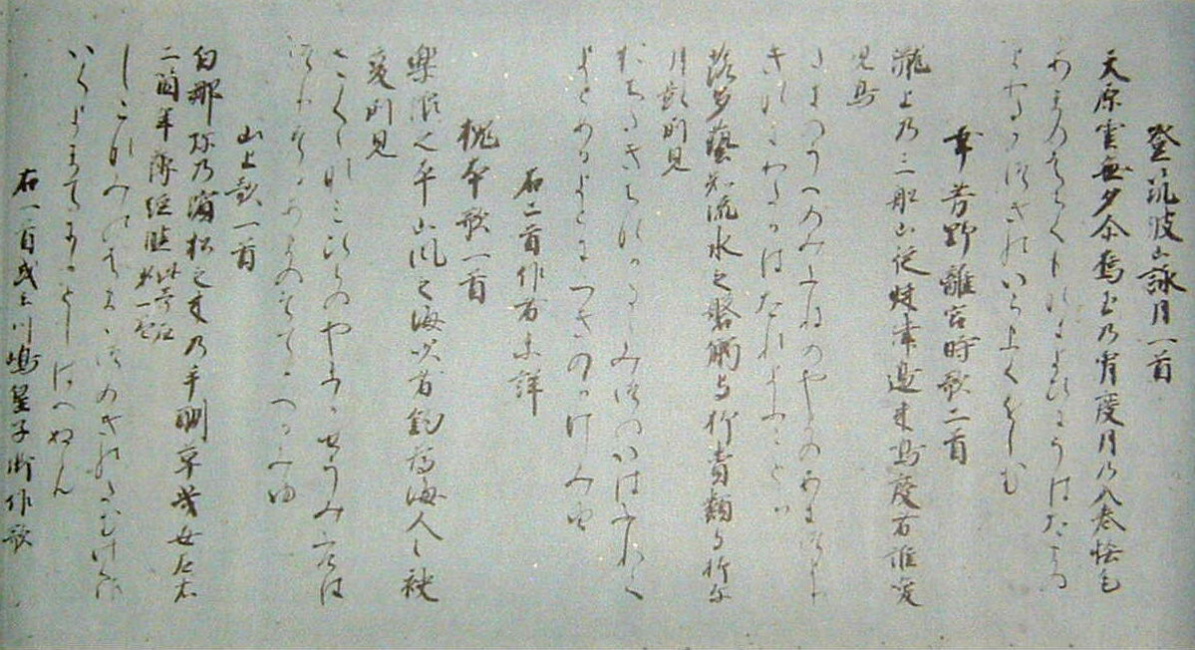 登筑波山詠月一首
天原雲無夕尓烏玉乃宵度月乃入巻恡毛
あまのそらくもなきよひにうはたまの
よわたるつきのいらまくをしも
幸芳野離宮時歌二首
瀧上乃三船山従秋津邊来鳴度者誰喚
児鳥
たきのうへのみふねのやまのあきつより
きなきわたるはたれよふことり
落多藝知流水之磐觸与杼賣類与杼尓
月影所見
おちたきちなかるゝみつのいはにふれ
よとめるよとにつきのかけみゆ
右二首作者未詳
槐本歌一首
樂浪之平山風之海吹者釣為海人之袂
変所見
さゝなみのひらのやまかせうみふけは
つりするあまのそてかへるみゆ
山上歌一首
白那弥乃濱松之木乃手酬草幾世左右
二箇年薄経濫
しらなみのはまゝつのきのたむけくさ
いくよまてにかとしはへぬらん
右一首或云川嶋皇子御作歌